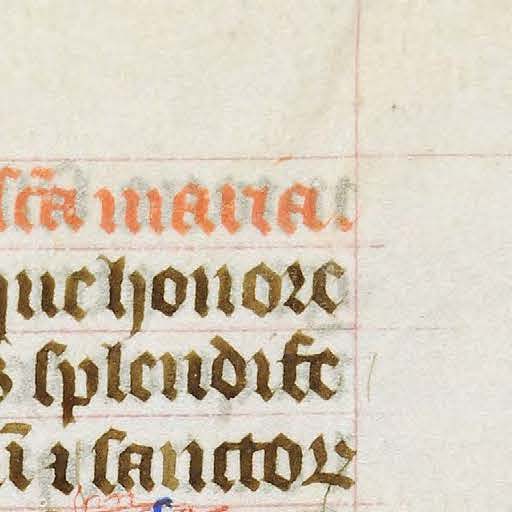 sc̄a maria.
que honore
splendife
ı sanctoꝝ